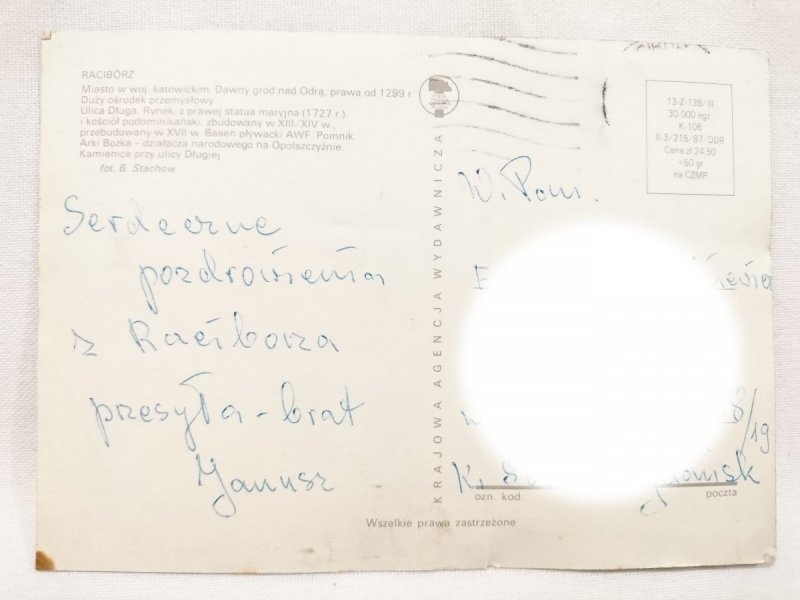 RACIBÓRZ
Miasto w woj. katowickim. Dawny gród nad Odrą, prawa od 1299 r.
Duży ośrodek przemysłowy.
Ulica Długa. Rynek, z prawej statua maryjna (1727 r.)
i kościół podominikański, zbudowany w XIII/XIV w.,
przebudowany w XVII w. Basen pływacki AWF. Pomnik
Arki Bożka – działacza narodowego na Opolszczyźnie.
Kamienice przy ulicy Długiej
fot. B. Stachow
Serdeczne
pozdrowienia
z Raciborza
przesyła - brat
Janusz
KRAJOWA AGENCJA WYDAWNICZA
13-Z-136/III
30 000 egz.
K-106
II-3/215/87/DDR
Cena zł 24,50
+50 gr
na CZMP
W. Pani.
8/19
K.
ozn. kod.
poczta
Wszelkie prawa zastrzeżone